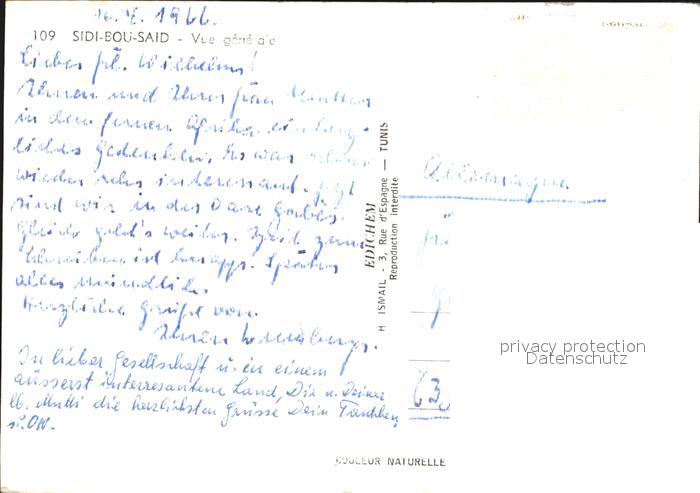 1966.
109 SIDI-BOU-SAID - Vue générale
Liebes Frl. Wilhelms!
Ihnen und Ihrer Frau Mutter
in dem fernen Afrika ein
liches Gedenken. Es war
wieder sehr interessant. Jetzt
sind wir in der Oase Gabès.
Gleich geht's weiter. Zeit zum
Schreiben ist knapp. Später
alles mündlich.
Herzliche Grüße von
Ihren
In lieber Gesellschaft u. in einem
äusserst interressanten Land, Dir u. Deiner
lb. Mutti die herzlichsten Grüsse Dein Tantchen
EDICHEM
H ISMAIL - 3, Rue d'Espagne — TUNIS
Reproduction interdite
Allemagne
63
privacy protection
Datenschutz
COULEUR NATURELLE